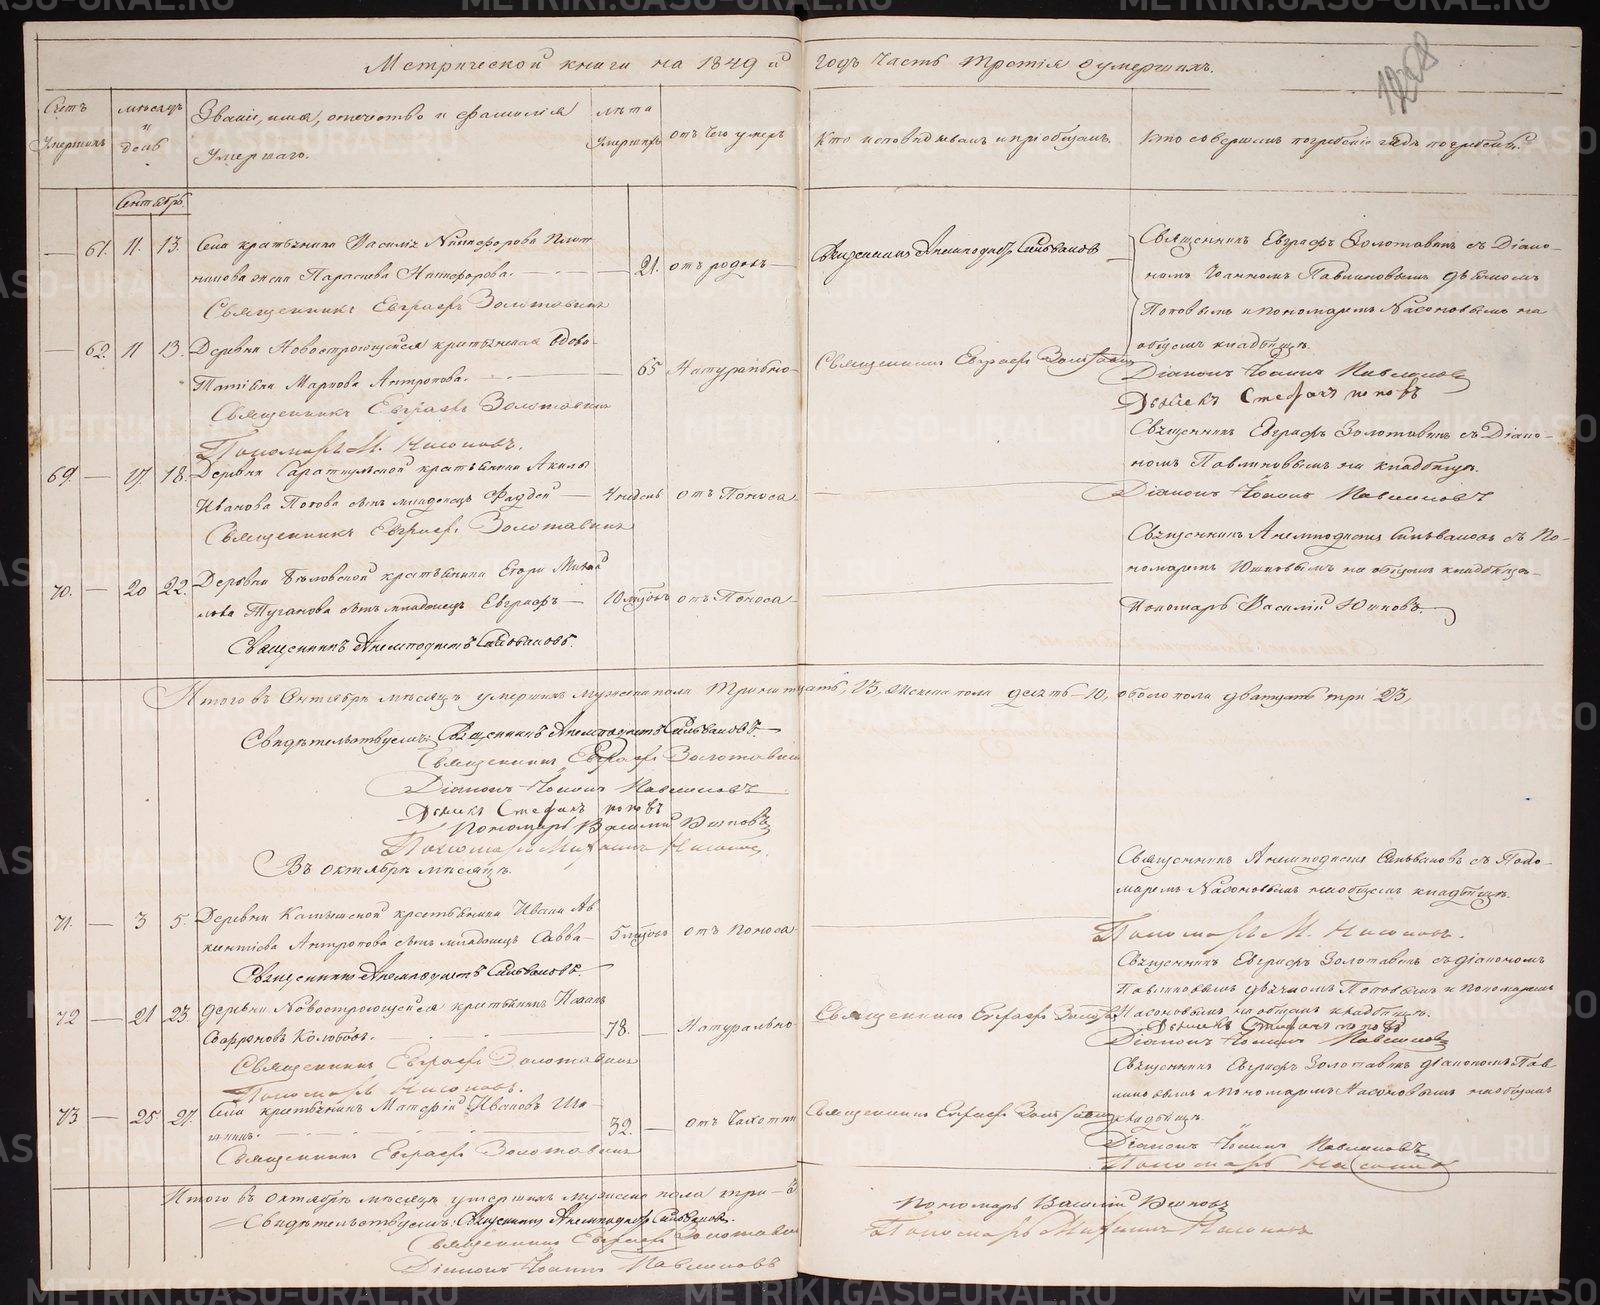 Метрической книги на 1849й годъ Часть третія о умершихъ.
1268
Счетъ Умершихъ
мѣсяцъ и день
Званіе, имя, отечество и фамилія Умершаго.
лѣта Умершихъ
отъ Чего умеръ
Кто исповѣдывалъ и пріобщалъ.
Кто совершилъ погребеніе и гдѣ погребены
Сентябрь.
61. 11. 13. Села крестьянина Василія Никифорова
жена Параскева Никифорова. 21. отъ родовъ
Священникъ Анемподистъ Сильвановъ
Священникъ Евграфъ Золотавинъ съ Діако-
номъ Іоанномъ Павлиновымъ дьячкомъ
Поповымъ и пономаремъ Насоновымъ на
общемъ кладбищѣ.
Священникъ Евграфъ Золотавинъ
62. 11 13. Деревни Новостроющейся крестьянская вдова
Татіана Маркова Антропова. 65 Натурально
Священникъ Евграфъ Золотавинъ
Діаконъ Іоаннъ Павлиновъ
Дьячекъ Стефанъ поповъ
Священникъ Евграфъ Золотавинъ
Пономарь М. Насоновъ.
Священникъ Евграфъ Золотавинъ съ Діако-
номъ Павлиновымъ на кладбищѣ.
Діаконъ Іоаннъ Павлиновъ
69. 17. 18. Деревни крестьянина Акилы
Иванова Попова сынъ младенецъ Фаддей 4 недѣль отъ Поноса
Священникъ Евграфъ Золотавинъ
Священникъ Анемподистъ Сильвановъ съ По-
номаремъ Юшковымъ на общемъ кладбищѣ
Пономарь Василій Юшковъ.
70. 20 22. Деревни Бѣловской крестьянина Егора Михай
лова Туганова сынъ младенецъ Евграфъ 10 мѣсяц отъ Поноса
Священникъ Анемподистъ Сильвановъ.
Итого въ Сентябрѣ мѣсяцѣ умершихъ мужеска пола тринатцать, 13, женска пола десять - 10, обоего пола дватцать три 23,
Свидѣтельствуемъ: Священникъ Анемподистъ Сильвановъ.
Священникъ Евграфъ Золотавинъ
Діаконъ Іоаннъ Павлиновъ
Дьячекъ Стефанъ поповъ
Пономарь Василій Юшковъ
Пономарь Михаилъ Насоновъ.
Въ октябрѣ мѣсяцѣ.
Священникъ Анемподистъ Сильвановъ съ Поно-
маремъ Насоновымъ на общемъ кладбищѣ.
Пономарь М. Насоновъ.
71. 3 5. Деревни Камышской крестьянина Ивана Ав
кинтіева Антропова сынъ младенецъ Савва 5 мѣсяц отъ поноса
Священникъ Анемподистъ Сильвановъ.
Священникъ Евграфъ Золотавинъ съ діакономъ
Павлиновымъ дьячкомъ Поповымъ и пономаремъ
Насоновымъ на общемъ кладбищѣ.
72 21 23 деревни Новостроющейся крестьянинъ Иванъ
Сафроновъ Колобовъ. 78. Натурально
Священникъ Евграфъ Золотавинъ
Дьячекъ Стефанъ поповъ
Діаконъ Іоаннъ Павлиновъ
Священникъ Евграфъ Золотавинъ
Пономарь Насоновъ.
Священникъ Евграфъ Золотавинъ діакономъ Пав
линовымъ и пономаремъ Насоновымъ на общемъ
кладбищѣ.
73 25 27. Села крестьянинъ Матфій Ивановъ
32. отъ Чахотки
Священникъ Евграфъ Золотавинъ
Священникъ Евграфъ Золотавинъ
Діаконъ Іоаннъ Павлиновъ
Пономарь Насоновъ
Итого въ октябрѣ мѣсяцѣ умершихъ мужеска пола три - 3
Свидѣтельствуемъ: Священникъ Анемподистъ Сильвановъ.
Священникъ Евграфъ Золотавинъ
Діаконъ Іоаннъ Павлиновъ
Пономарь Василій Юшковъ
Пономарь Михаилъ Насоновъ
METRIKI.GASO-URAL.RU